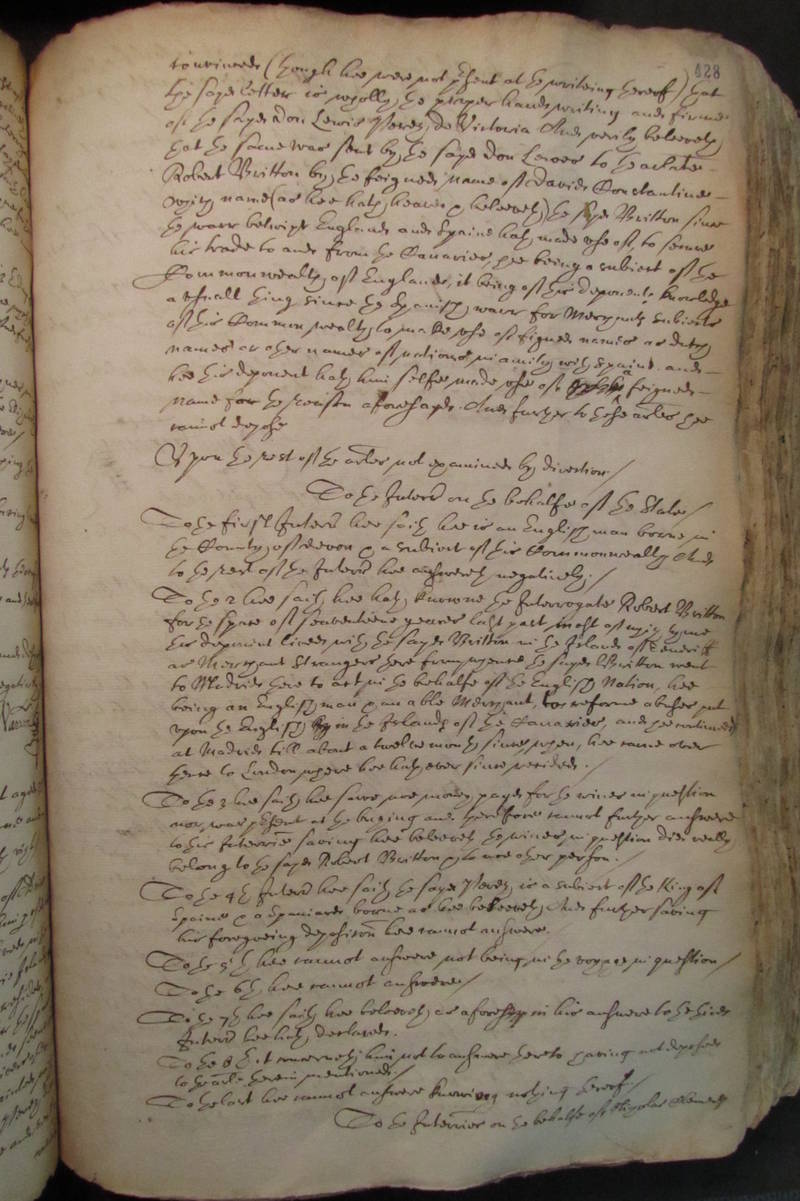 428
convinced (though hee were not present at the writeing hereof) that
the sayd letter is wholly the proper hand writing and firme
of the sayd don Lewis Perez de Victoria And verily beleeveth
that the same was sent by the sayd don Lewes to the arlate
Robert Britton by the feigned name of david Constantine
which name (as hee hath heard & beleeveth) the sayd Britton since
the warr betwixt England and Spaine hath made use of, to secure
his trade to and from the Canaries hee being a subiect of the
Commonwealth of England, it being of this deponents knowledge
a usuall thing since the Spanish warr for Merchants subiects
of this Common wealth to make use of figned names or dutch
names or other names of nations in amity with Spaine and
hee this deponent hath him selfe made use of feigned
name for the reason aforesayd. And further to these arles hee
cannot depose
Upon the rest of the arles not examined by direction /
To the Interr on the behalfe of the State /
To the first Interr hee saith hee is an English man borne in
the County of devon & a subiect of this Commonwealth And
to the rest of the Interr hee answereth negatively. /
To the 2 hee saith hee hath knowne the Interrogate Robert Britton
for the space of seaventeene yeares last past, most of which tyme
this deponent lived with the sayd Britton in the Island of Teneriff
as Merchant Strangers there from whence the sayd Britton went
to Madrid there to act in the behalfe of the English Nation, hee
being an English man & an able Merchant, to reforme abuses put
upon the English in the Islands of the Canaries, and hee continued
at Madrid till about a twelve month since when, hee came over
hence to London where hee hath ever since resided. /
To the 3 hee saith hee sawe noe money payd for the wines in question
nor was present at the buying and therefore cannot further answere
to this Interrie saving hee beleeveth the wines in question did really
belong to the sayd Robert Britton & to noe other person. /
To the 4th Interr hee saith the sayd Perez is a subiect of the King of
Spaine & a Spaniard borne as hee beleeveth And further saving
his foregoeing deposition hee cannot answere.
To the 5th hee cannot answere not being in the voyage in question /
To the 6th hee cannot answere /
To the 7th hee saith hee beleeveth as aforesayd in his answere to the third
Interr hee hath declared.
To the 8th it concerneth him not to answere hereto having not deposed
to the arle herein mentioned. /
To the last hee cannot answere knowing nothing hereof /
To the Interries on the behalfe of Nicholas Clements